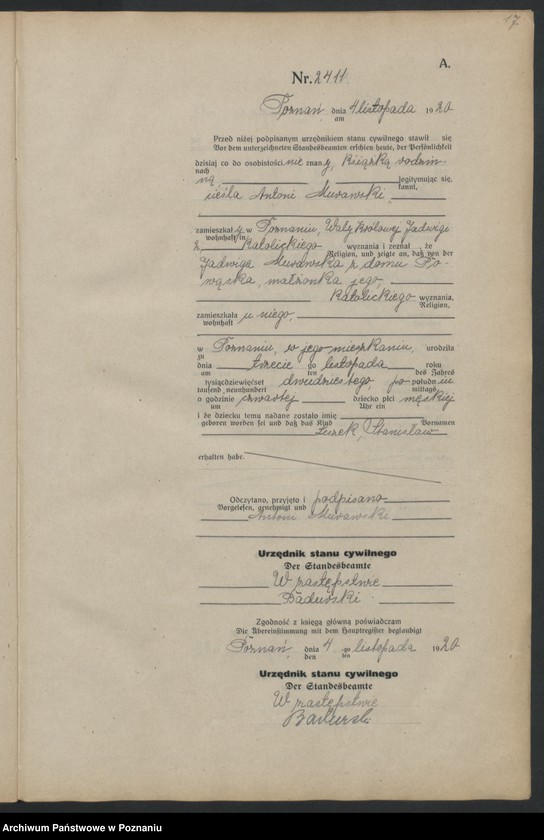 17
A.
Nr. 2411
Poznań dnia 4 listopada 1920
am
Przed niżej podpisanym urzędnikiem stanu cywilnego stawił się
Vor dem unterzeichneten Standesbeamten erschien heute, der Persönlichkeit
dzisiaj co do osobistości nie znany, książką rodzin
nach
ną legitymując się,
kannt,
cieśla Antoni Murawski
zamieszkały w Poznaniu, Wały Królowej Jadwigi
wohnhaft in
Katolickiego wyznania i zeznał że
Religion, und zeigte an, daß von der
Jadwiga Murawska z domu
małżonka jego,
Katolickiego wyznania,
Religion,
zamieszkała u niego,
wohnhaft
w Poznaniu, w jego mieszkaniu, urodziła
zu
dnia trzeciego listopada roku
am ten des Jahres
tysiącdziewięćset dwudziestego, po południu
tausend neunhundert mittags
o godzinie czwartej dziecko płci męskiej
um Uhr ein
i że dziecku temu nadane zostało imię
geboren worden sei und daß das Kind Vornamen
Leszek, Stanisław
erhalten habe.
Odczytano, przyjęto i podpisano
Vorgelesen, genehmigt und
Antoni Murawski
Urzędnik stanu cywilnego
Der Standesbeamte
W zastępstwie
Zgodność z księgą główną poświadczam
Die Übereinstimmung mit dem Hauptregister beglaubigt
Poznań, dnia 4 go listopada 1920
den ten
Urzędnik stanu cywilnego
Der Standesbeamte
W zastępstwie
Archiwum Państwowe w Poznaniu